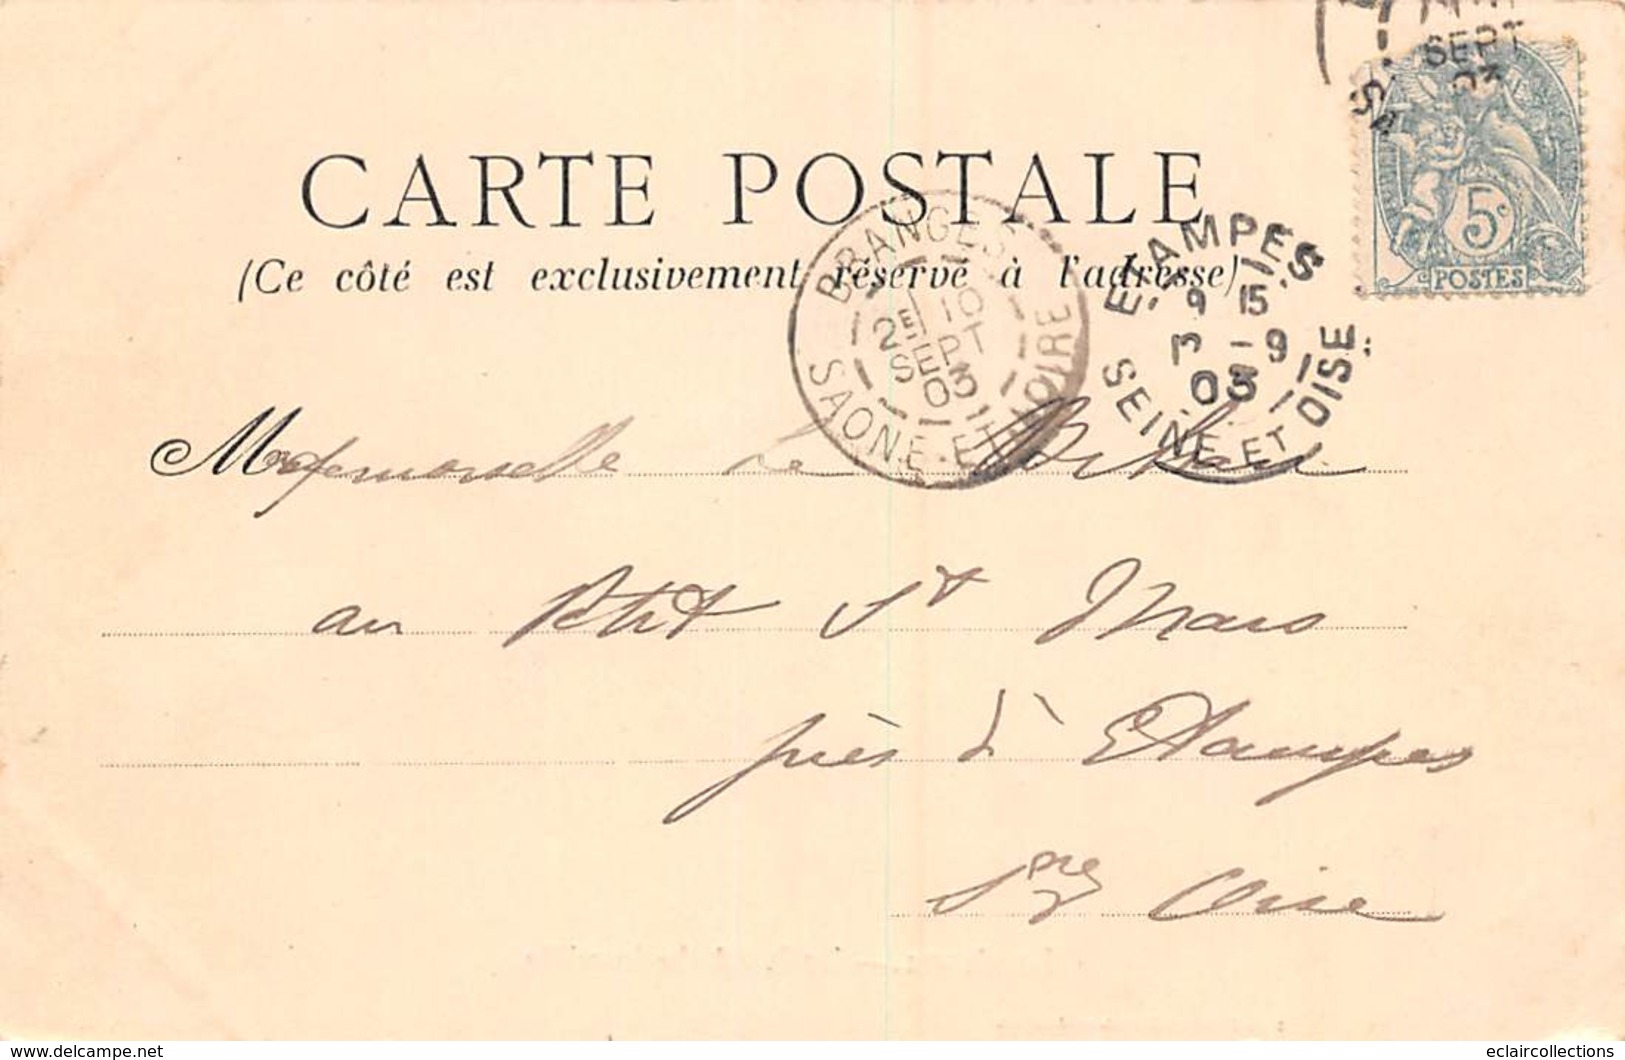 CARTE POSTALE
(Ce côté est exclusivement réservé à l'adresse)
SEPT
03
SA
5c
POSTES
BRANGES
10
2E
SEPT
03
SAONE-ET-LOIRE
ETAMPES
9 15
3 -9
03
SEINE ET OISE
Mademoiselle Le
au Petit St Mars
près d'Etampes
Sne Oise
eclaircollections.delcampe.net
eclaircollections